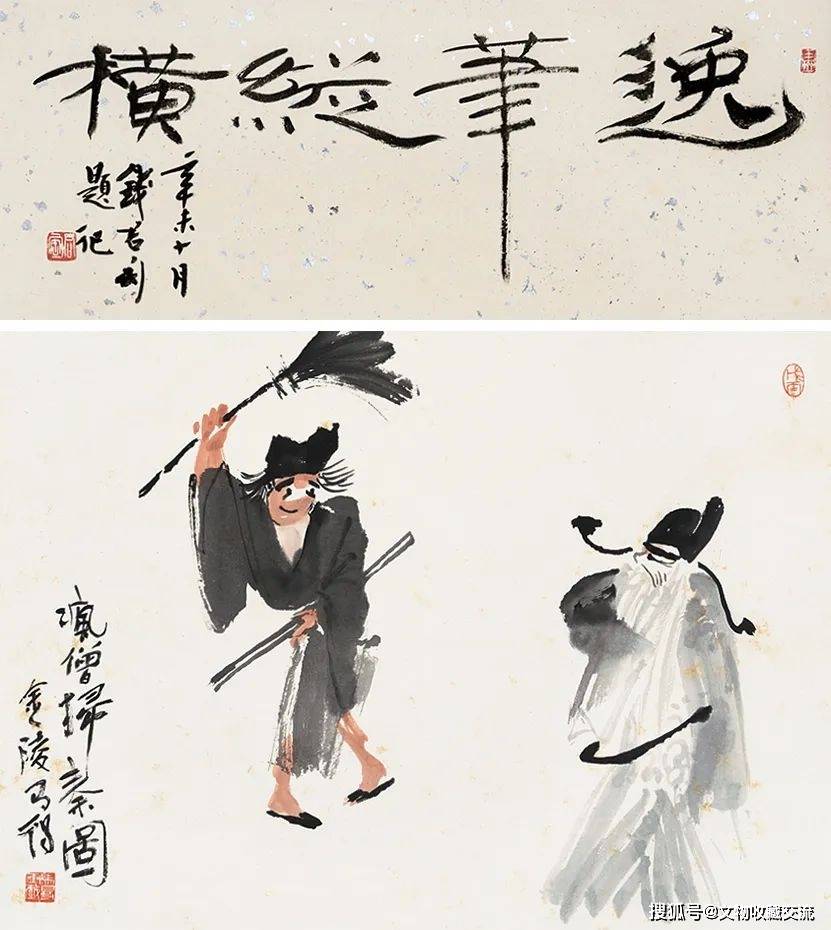 逸筆縱橫
辛未十月
錢君匋
題記
瘋僧掃秦圖
金陵馬得
搜狐号@文物收藏交流